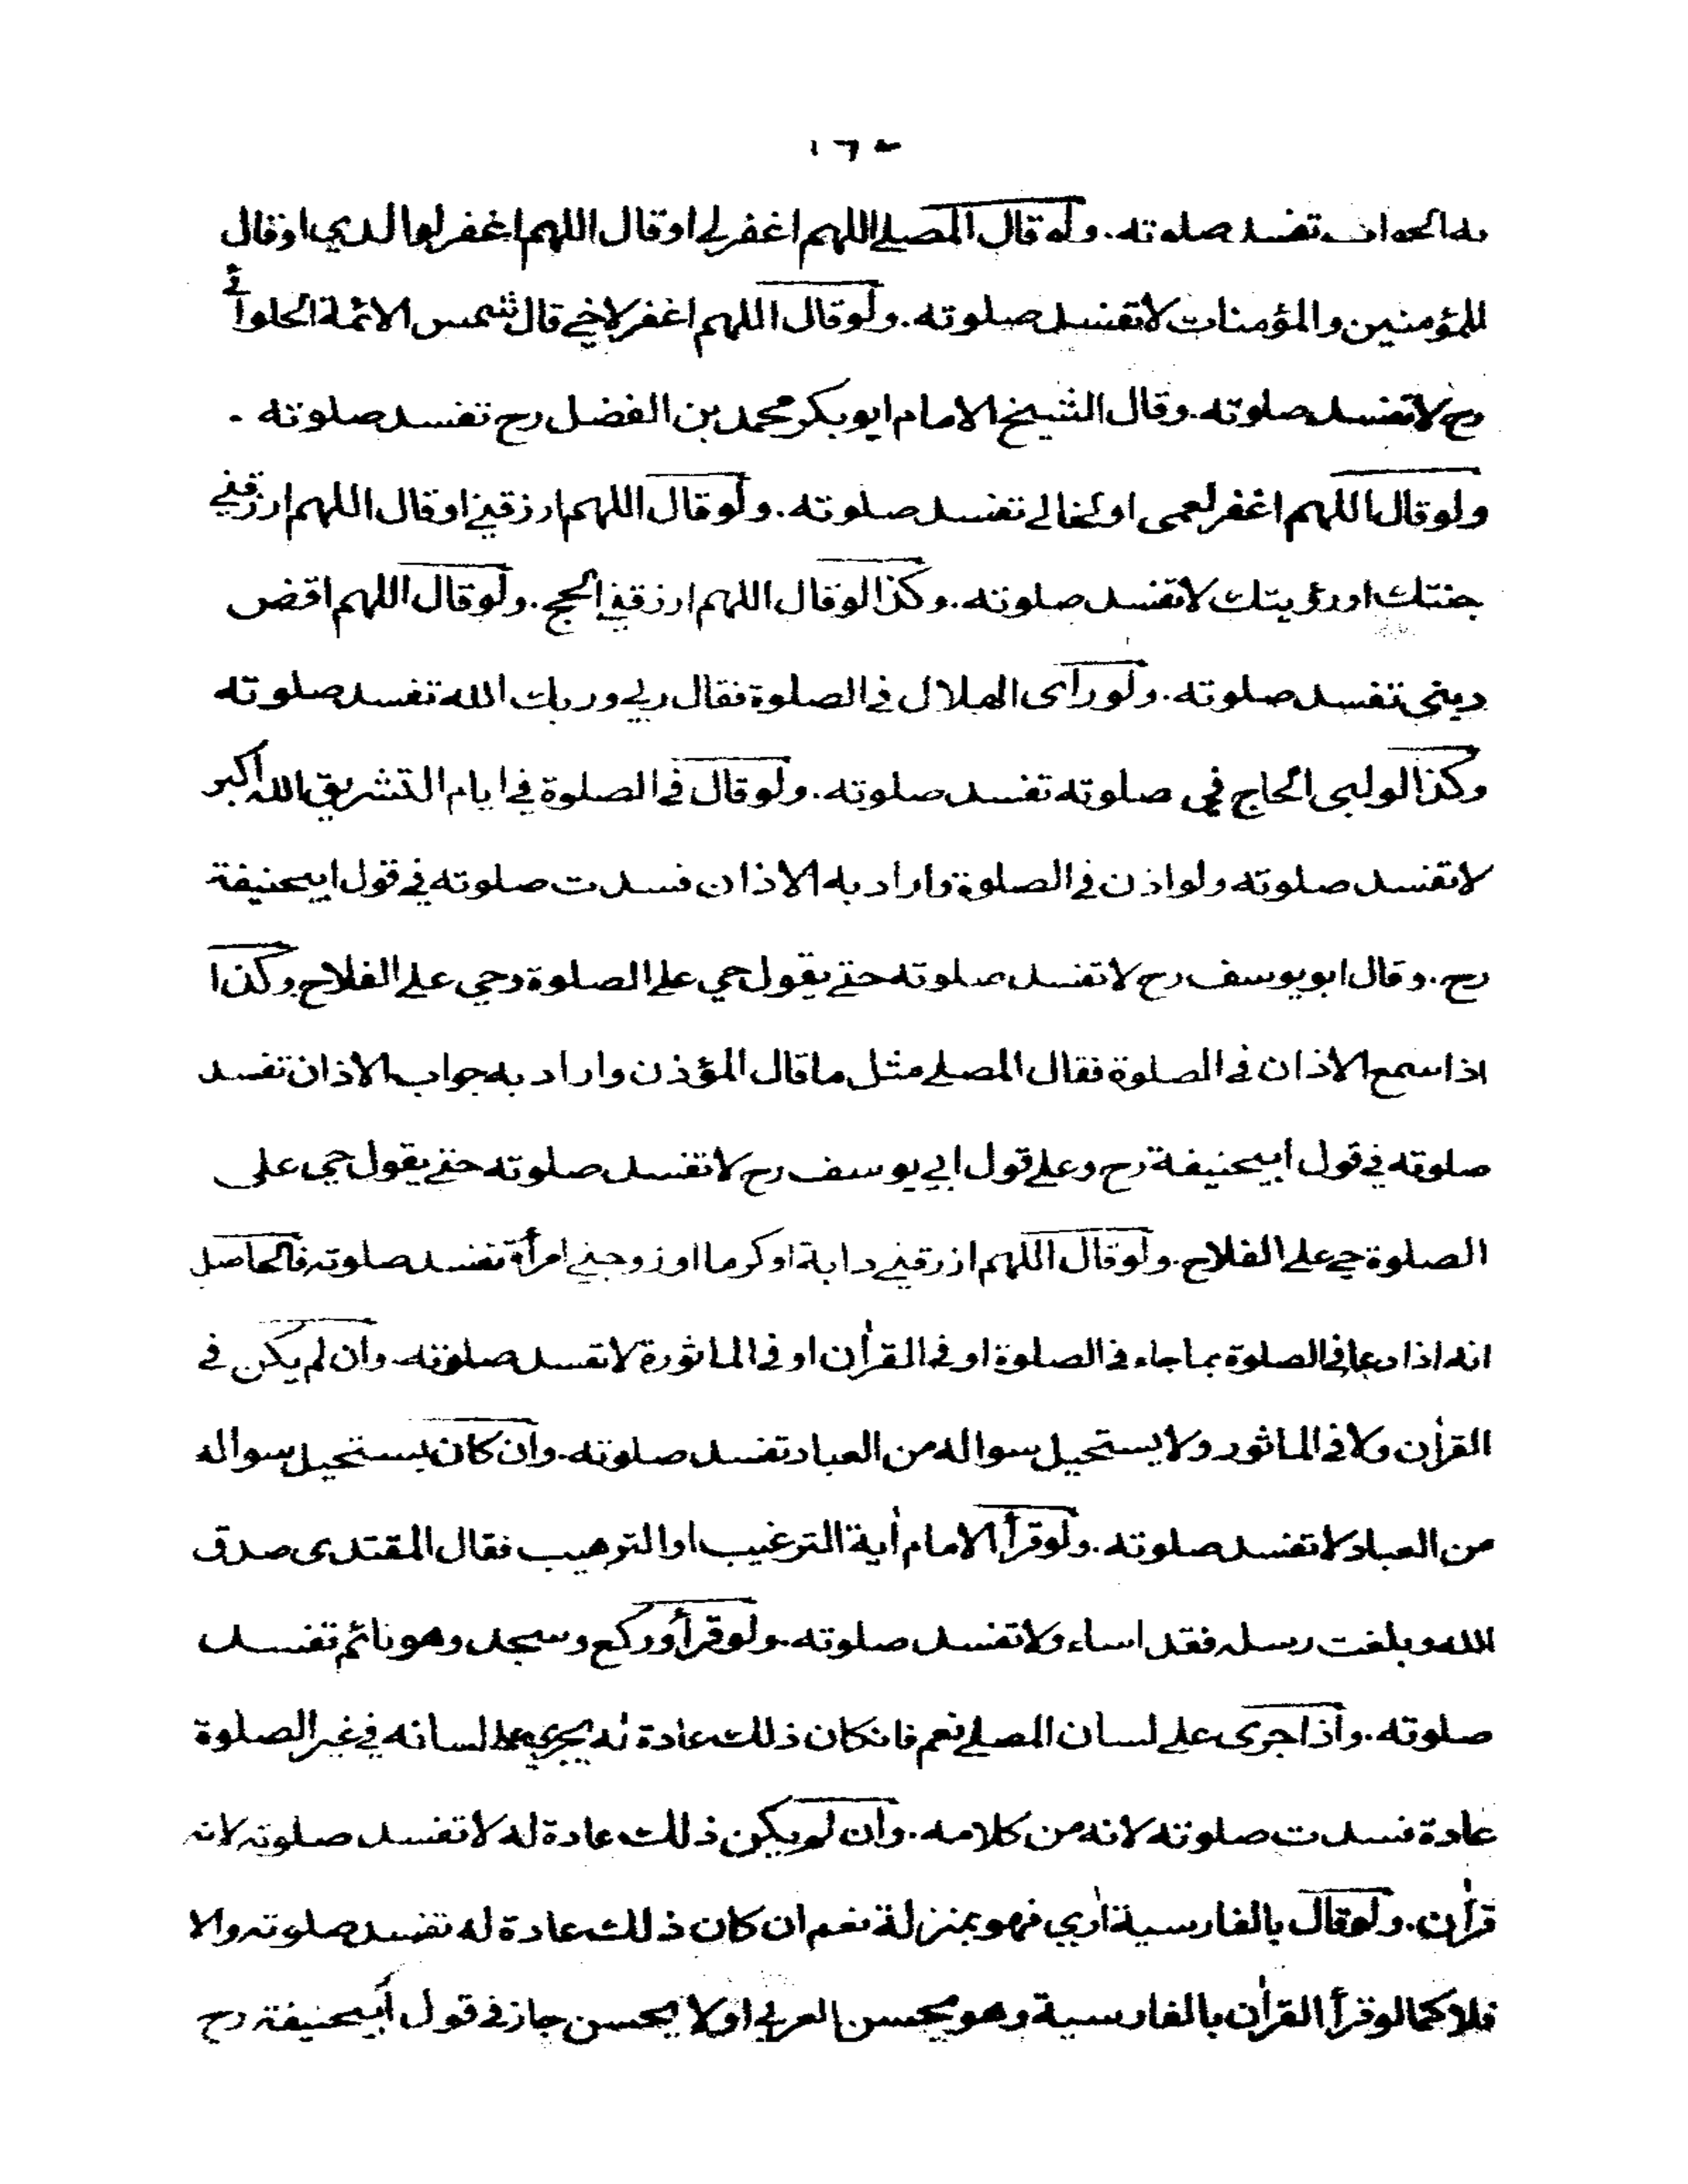 به الجواب تفسد صلوته. ولو قال المصلے اللهم اغفر لے او قال اللهم اغفر لوالدي او قال
للمؤمنين والمؤمنات لا تفسد صلوته. ولو قال اللهم اغفر لاخے قال شمس الائمة الحلوائے
رح لا تفسد صلوته. وقال الشيخ الامام ابو بكر محمد بن الفضل رح تفسد صلوته .
ولو قال اللهم اغفر لعمى او لخالے تفسد صلوته. ولو قال اللهم ارزقنے او قال اللهم ارزقنے
جنتك او رؤيتك لا تفسد صلوته. وكذا لو قال اللهم ارزقنے الحج. ولو قال اللهم اقض
دينى تفسد صلوته. ولو رأى الهلال فے الصلوة فقال ربے وربك الله تفسد صلوته
وكذا لو لبى الحاج في صلوته تفسد صلوته. ولو قال فے الصلوة فے ايام التشريق الله اكبر
لا تفسد صلوته ولو اذن فے الصلوة واراد به الاذان فسدت صلوته فے قول ابيحنيفة
رح. وقال ابو يوسف رح لا تفسد صلوته حتے يقول حي علے الصلوة وحي علے الفلاح وكذا
اذا سمع الاذان فے الصلوة فقال المصلے مثل ما قال المؤذن واراد به جواب الاذان تفسد
صلوته فے قول ابيحنيفة رح وعلے قول ابي يوسف رح لا تفسد صلوته حتے يقول حي على
الصلوة حے علے الفلاح. ولو قال اللهم ارزقنے دابة او كرما او زوجنے امرأة تفسد صلوته فالحاصل
انه اذا دعا فے الصلوة بما جاء فے الصلوة او فے القرأن او فے الماثورة لا تفسد صلوته. وان لم يكن فے
القرأن ولا فے الماثور ولا يستحيل سواله من العباد تفسد صلوته. وان كان يستحيل سواله
من العباد لا تفسد صلوته. ولو قرأ الامام أية الترغيب او الترهيب فقال المقتدى صدق
الله وبلغت رسله فقد اساء ولا تفسد صلوته. ولو قرأ وركع وسجد وهو نائم تفسد
صلوته. واذا جرى علے لسان المصلے نعم فانكان ذلك عادة له يجري علے لسانه فے غير الصلوة
عادة فسدت صلوته لانه من كلامه. وان لم يكن ذلك عادة له لا تفسد صلوته لانه
قرأن. ولو قال بالفارسية أري فهو بمنزلة نعم ان كان ذلك عادة له تفسد صلوته والا
فلا كما لو قرأ القرأن بالفارسية وهو يحسن العربے او لا يحسن جاز فے قول ابيحنيفة رح